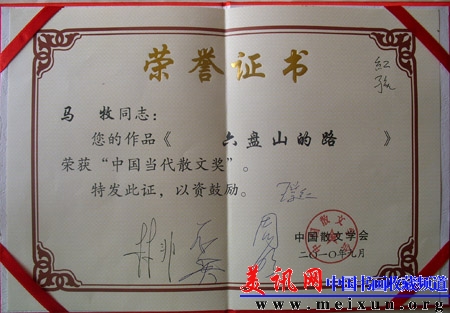 荣誉证书
红孩
马 牧同志：
您的作品《 六盘山的路 》
荣获“中国当代散文奖”。
特发此证，以资鼓励。
林非
周明
中国散文学会
中国散文学会
二〇一〇年九月
美讯网中国书画收藏频道
www.meixun.org